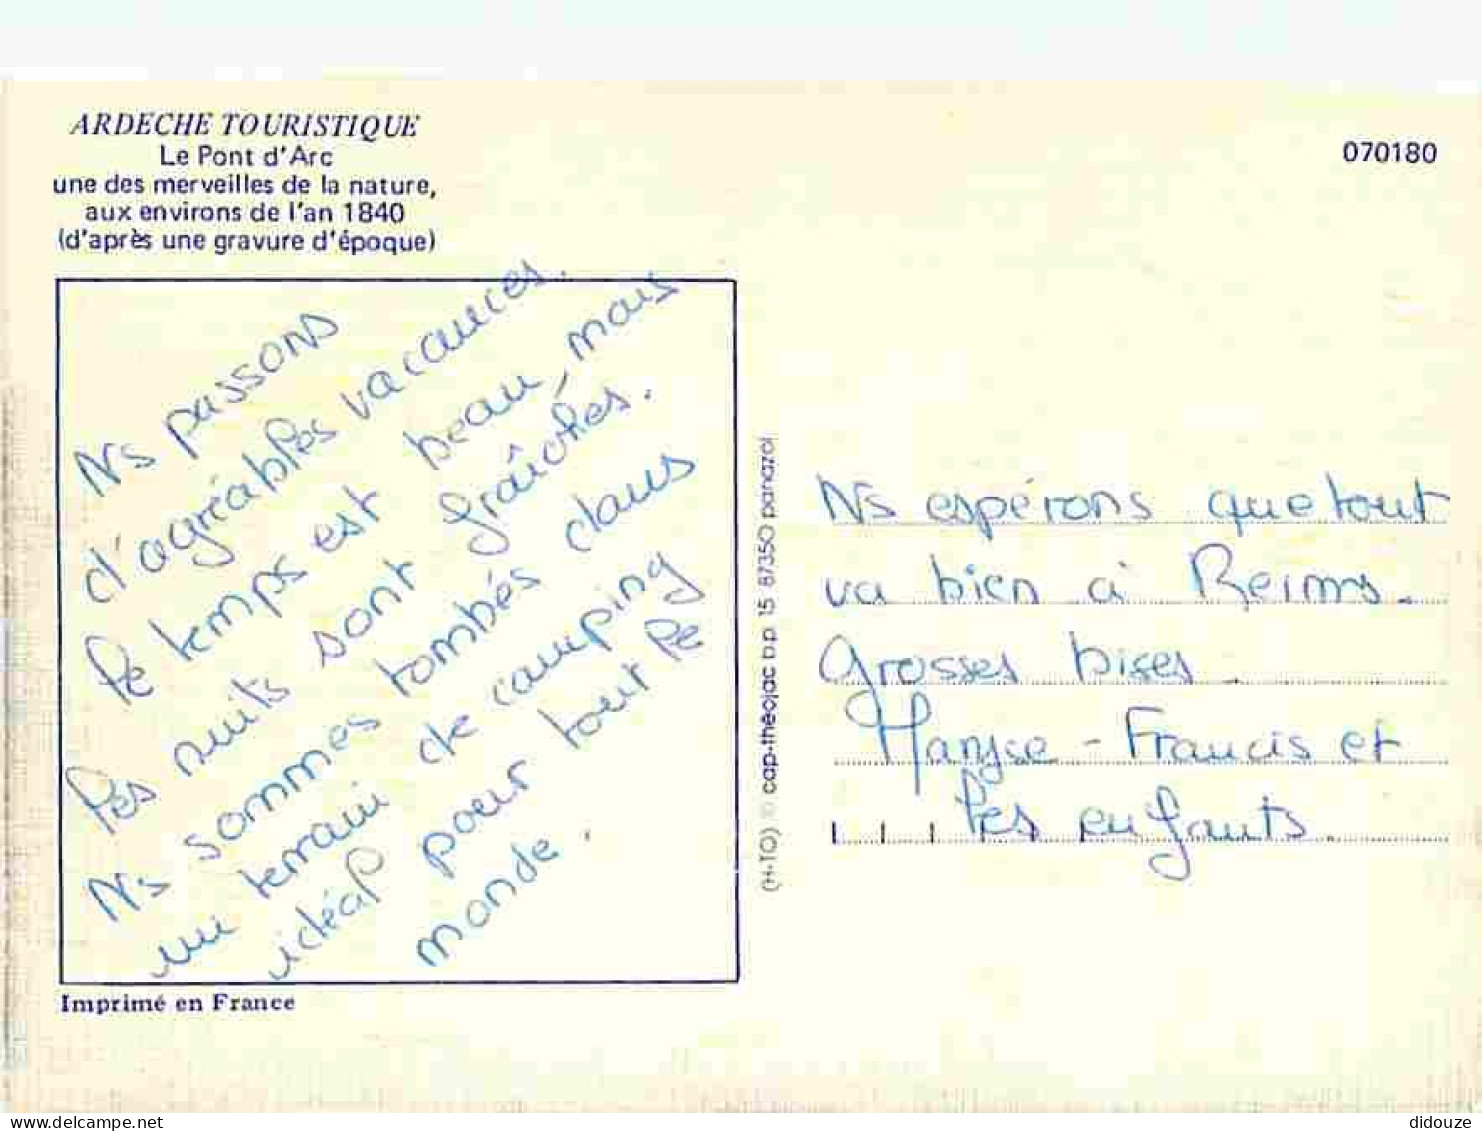 ARDECHE TOURISTIQUE
Le Pont d'Arc
une des merveilles de la nature,
aux environs de l'an 1840
(d'après une gravure d'époque)
070180
Ns passons
d'agréables vacances.
le temps est beau, mais
les nuits sont fraîches.
Ns sommes tombés dans
un terrain de camping
idéal pour tout le
monde.
Imprimé en France
(H-TO) © cap-théojac b.p. 15 87350 panazol
Ns espérons que tout
va bien à Reims.
Grosses bises.
Maryse - Francis et
les enfants.
delcampe.net
didouze